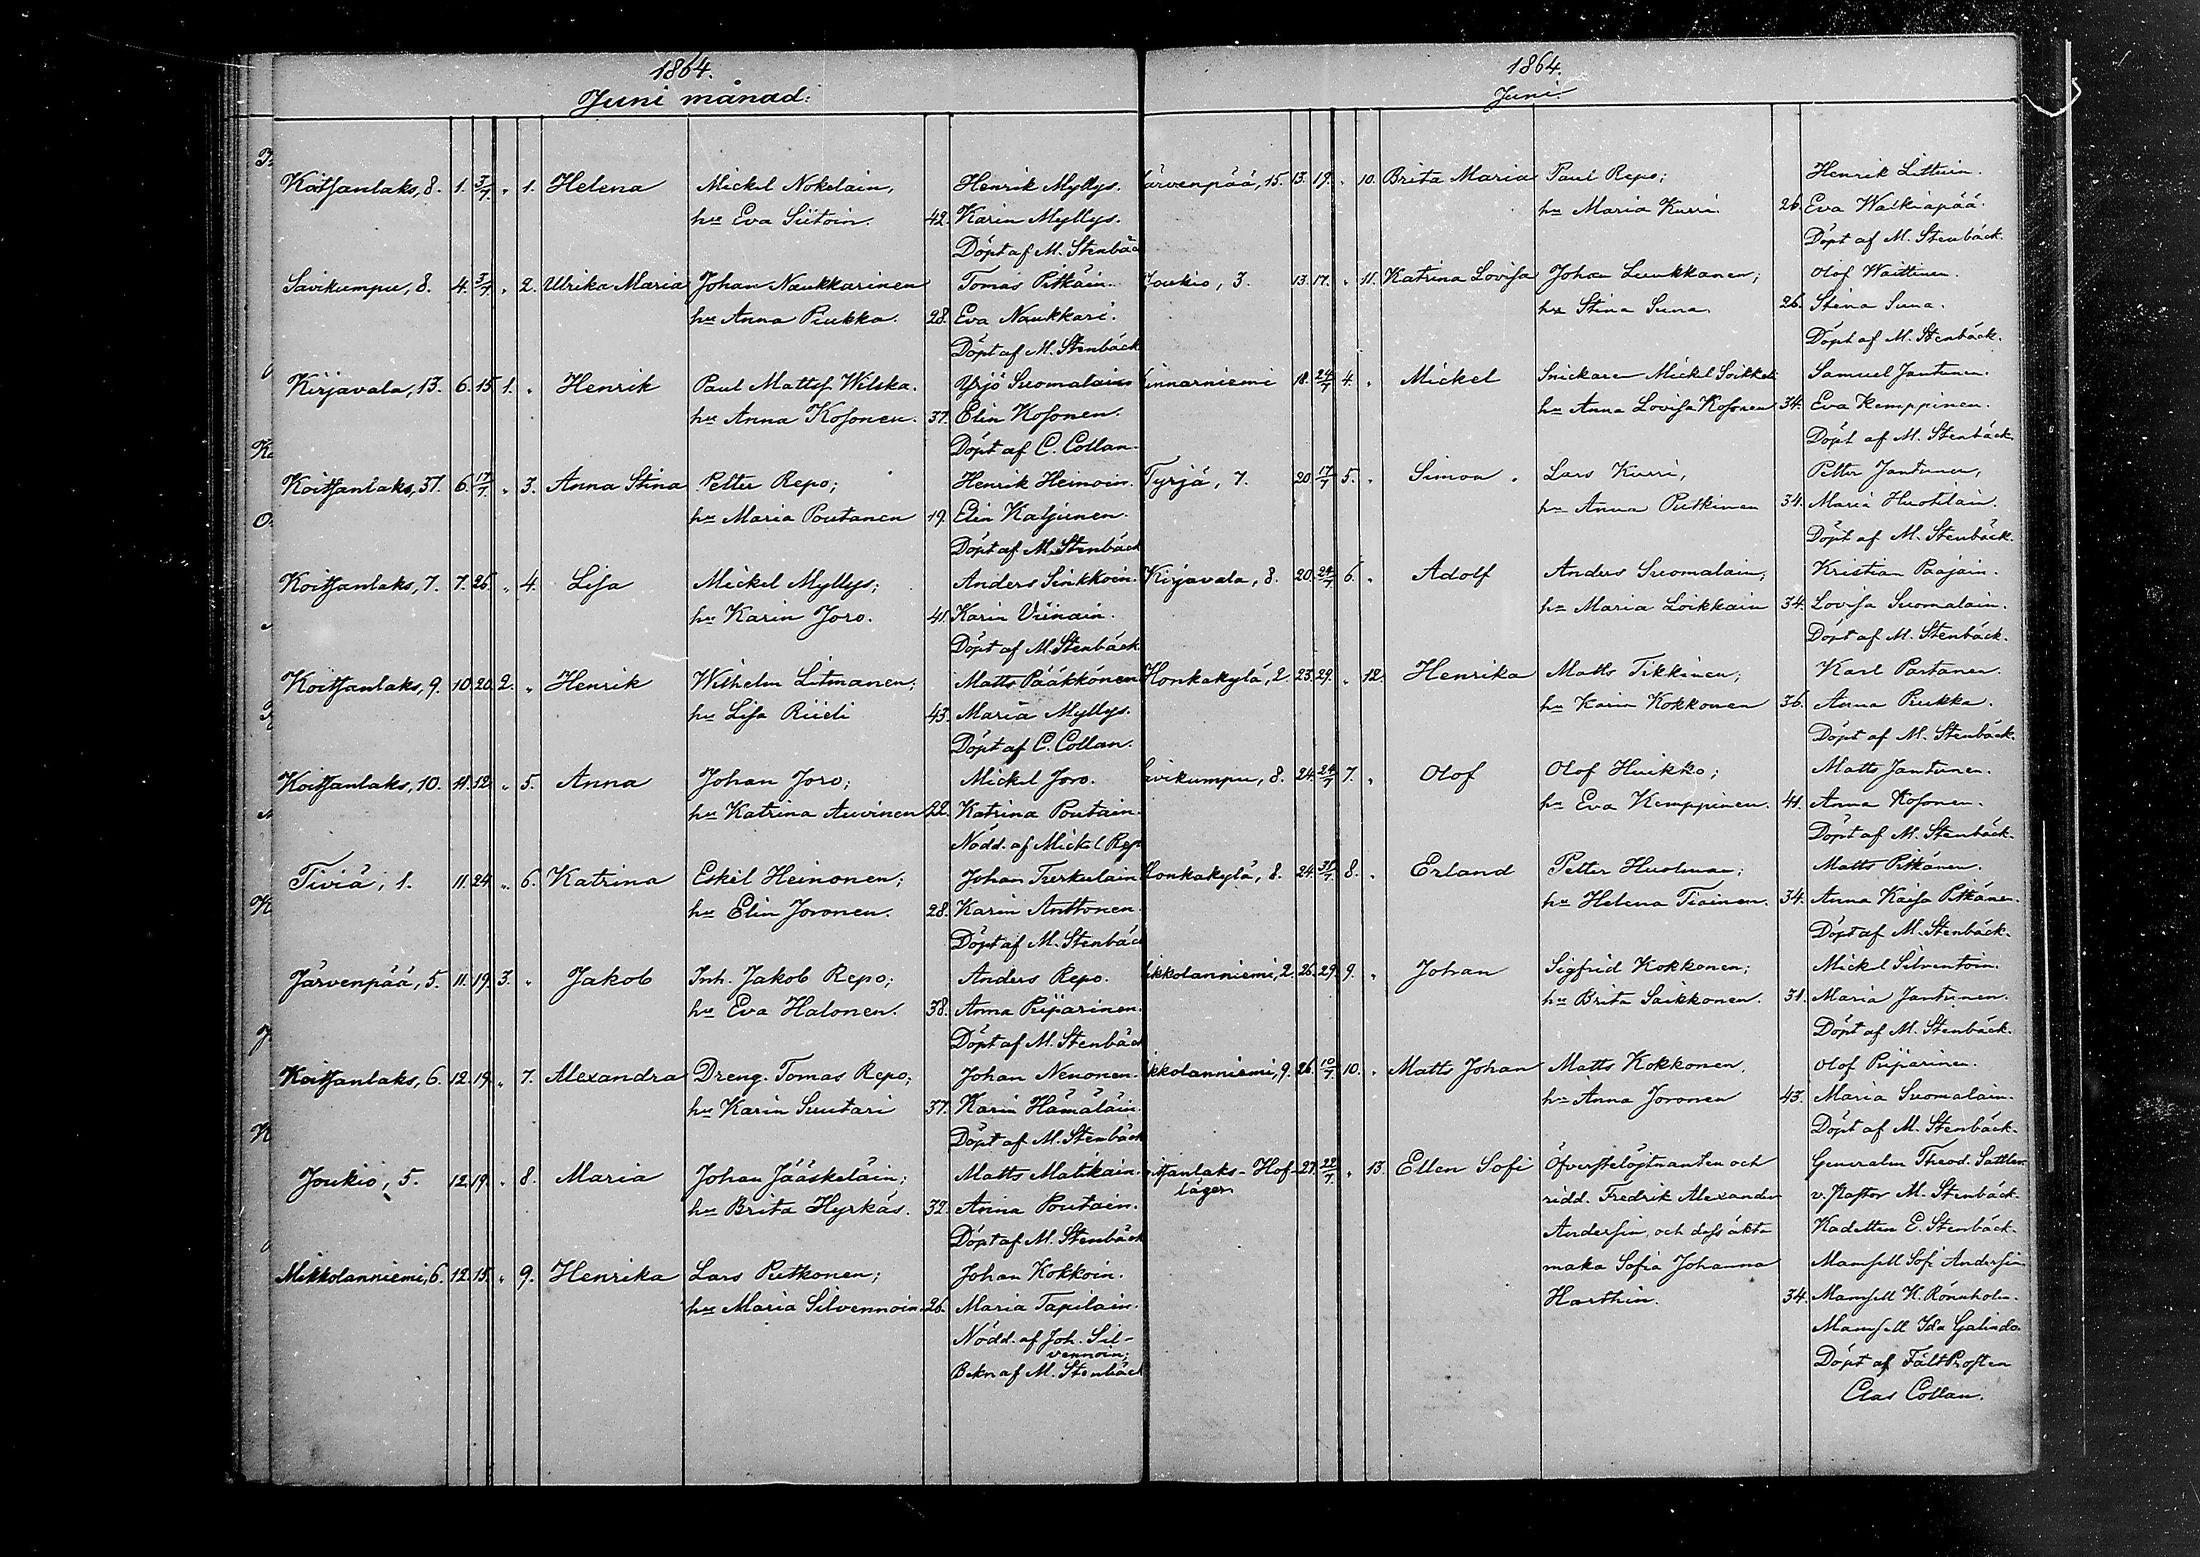 1864.
Juni månad:
Koitsanlaks, 8. 1. 3/7. " 1. Helena Mickel Nokelain, Henrik Myllys.
hu Eva Siitoin. 42. Karin Myllys.
Döpt af M. Stenbäck
Savikumpu, 8. 4. 3/7. " 2. Ulrika Maria Johan Naukkarinen Tomas Pitkäin.
hu Anna Piukka. 28. Eva Naukkari.
Döpt af M. Stenbäck
Kirjavala, 13. 6. 15. 1. " Henrik Paul Mattsf. Wilska. Yrjö Suomalain
hu Anna Kosonen. 37. Elin Kosonen.
Döpt af C. Collan.
Koitsanlaks, 37. 6. 17/7. " 3. Anna Stina Petter Repo; Henrik Heinoin.
hu Maria Poutanen 19. Elin Kaljunen.
Döpt af M. Stenbäck
Koitsanlaks, 7. 7. 26. " 4. Lisa Mickel Myllys; Anders Sinkkoin.
hu Karin Joro. 41. Karin Viinain.
Döpt af M. Stenbäck
Koitsanlaks, 9. 10. 20. 2. " Henrik Wilhelm Litmanen; Matts Pääkkönen
hu Lisa Riieli 43. Maria Myllys.
Döpt af C. Collan.
Koitsanlaks, 10. 11. 12. " 5. Anna Johan Joro; Mickel Joro.
hu Katrina Auvinen 22. Katrina Poutain.
Nödd. af Mickel Rep
Tiviä, 1. 11. 24. " 6. Katrina Eskil Heinonen; Johan Tserkulain
hu Elin Joronen. 28. Karin Anttonen.
Döpt af M. Stenbäck
Järvenpää, 5. 11. 19. 3. " Jakob Inh. Jakob Repo; Anders Repo.
hu Eva Halonen. 38. Anna Piiparinen.
Döpt af M. Stenbäck
Koitsanlaks, 6. 12. 19. " 7. Alexandra Dreng. Tomas Repo; Johan Nenonen.
hu Karin Suutari 37. Karin Hämäläin.
Döpt af M. Stenbäck
Joukio, 5. 12. 19. " 8. Maria Johan Jääskeläin; Matts Matikain.
hu Brita Hyrkäs. 32. Anna Poutain.
Döpt af M. Stenbäck
Mikkolanniemi, 6. 12. 15. " 9. Henrika Lars Putkonen; Johan Kokkoin.
hu Maria Silvennoin. 26. Maria Tapilain.
Nödd. af Joh. Sil-
vennoin;
Bekn af M. Stenbäck
1864.
Juni.
Järvenpää, 15. 13. 19. " 10. Brita Maria Paul Repo; Henrik Littuin.
hu Maria Kurri. 26. Eva Waikiapää.
Döpt af M. Stenbäck.
Joukio, 3. 13. 17. " 11. Katrina Lovisa Johan Luukkanen; Olof Waittinen.
hu Stina Suna. 26. Stina Suna.
Döpt af M. Stenbäck.
innarniemi 18. 24/7 4. " Mickel Snickare Mickel Soikkeli Samuel Jantunen.
hu Anna Lovisa Kosonen 34. Eva Kemppinen.
Döpt af M. Stenbäck.
Tyrjä, 7. 20. 17/7 5. " Simon Lars Kurri, Petter Jantunen,
hu Anna Putkinen 34. Maria Huotilain.
Döpt af M. Stenbäck.
Kirjavala, 8. 20. 24/7 6. " Adolf Anders Suomalain; Kristian Paajain.
hu Maria Loikkain 34. Lovisa Suomalain.
Döpt af M. Stenbäck.
Honkakylä, 2. 23. 29. " 12. Henrika Matts Tikkinen; Karl Partanen.
hu Karin Kokkonen 36. Anna Piukka.
Döpt af M. Stenbäck.
avikumpu, 8. 24. 24/7 7. " Olof Olof Huikko; Matts Jantunen.
hu Eva Kemppinen. 41. Anna Kosonen.
Döpt af M. Stenbäck.
Honkakylä, 8. 24. 31/7. 8. " Erland Petter Huolman; Matts Pitkänen.
hu Helena Tiainen. 34. Anna Kaisa Pitkänen.
Döpt af M. Stenbäck.
ikkolanniemi, 2. 26. 29. 9. " Johan Sigfrid Kokkonen; Mickel Silventoin.
hu Brita Saikkonen. 31. Maria Jantunen.
Döpt af M. Stenbäck.
ikkolanniemi, 9. 26. 10/7. 10. " Matts Johan Matts Kokkonen. Olof Piiparinen.
hu Anna Joronen 43. Maria Suomalain.
Döpt af M. Stenbäck.
itsanlaks-Hof- 27. 22/7. " 13. Ellen Sofi Öfverstelöjtnanten och Generalen Theod. Sattler
läger ridd. Fredrik Alexander v. Pastor M. Stenbäck.
Andersin, och dess äkta Kadetten E. Stenbäck.
maka Sofia Johanna Mamsell Sofi Andersin
Harthin. 34. Mamsell K. Rönnholm.
Mamsell Ida Galindo
Döpt af FältProsten
Clas Collan.